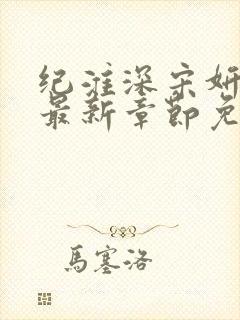 纪淮深宋妍
最新章节免
馬塞洛